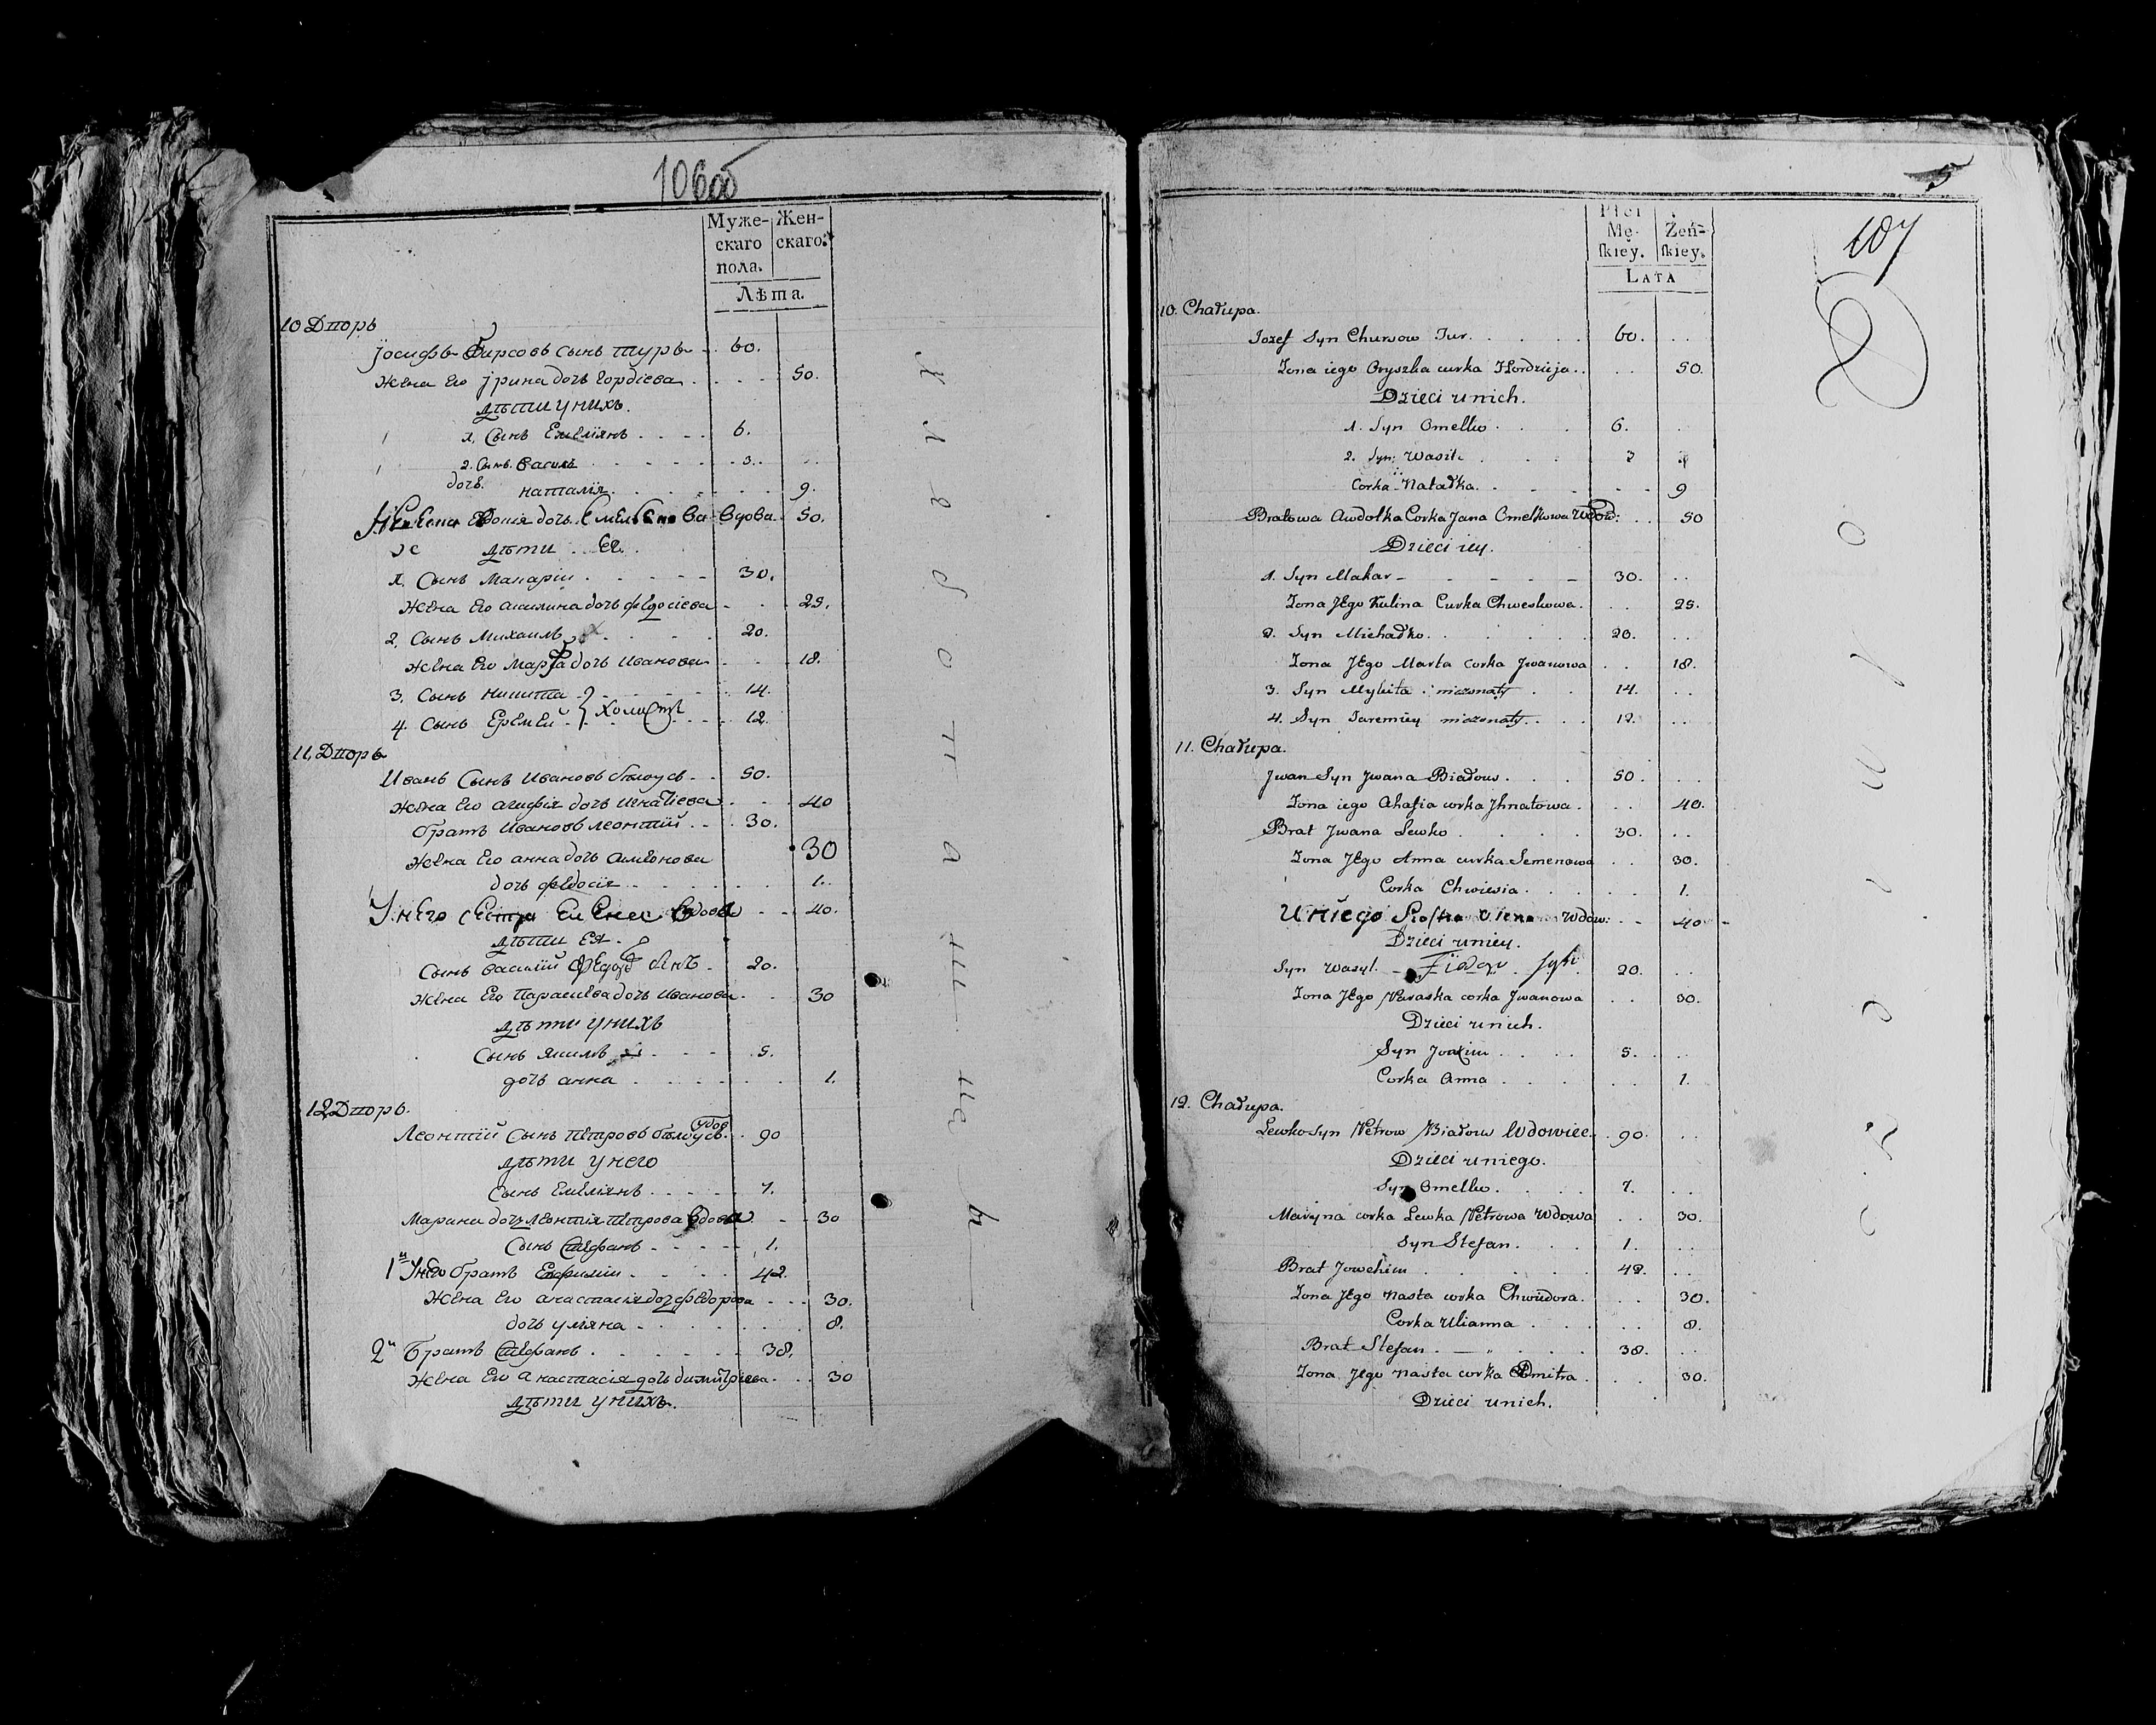 106об
Муже- Жен-
скаго скаго.
пола.
Лѣта.
10 Дворъ
Іосифъ Фирсовъ сынъ Туръ 60.
жена его Ірина дочь Гордіева 50.
дѣти у нихъ.
1, Сынъ Емеліянъ 6.
2. Сынъ Василь 3.
дочь Наталія 9.
Вдова 50.
дѣти Ея.
1, Сынъ Макарій 30.
жена его Акилина дочь Федосіева 25.
2, Сынъ Михаилъ 20.
жена его Марфа дочь Иванова 18.
3. Сынъ Никита 14.
Холосты
4. Сынъ Еремей 12.
11, Дворъ
Иванъ Сынъ Ивановъ Бѣлоусъ 50.
жена его Агафія дочь Игнатіева 40
братъ Ивановъ Леонтій 30.
жена его Анна дочь Симеонова 30
дочь Федосія 1.
У него Сестра Елена Вдова 40.
дѣти Ея.
Сынъ Василій 20.
жена его Параскева дочь Иванова 30
дѣти у нихъ
Сынъ Якимъ 5.
дочь Анна 1.
12, Дворъ.
Леонтій Сынъ Петровъ Бѣлоусъ вдов 90
дѣти у него
Сынъ Емеліянъ 7.
Марина дочь Леонтія Петрова Вдова 30
Сынъ Стефанъ 1.
1й У него братъ 42.
жена его Анастасія дочь Федорова 30.
дочь Уліяна 8.
2й Братъ Стефанъ 38.
жена его Анастасія дочь Димитріева 30
дѣти у нихъ.
5
107
Płci
Mę- Żeń-
ſkiey. ſkiey.
LATA
10. Chałupa.
Jozef Syn Chursow Tur 60.
Zona iego Oryszka curka Hordzieja 50.
Dzieci u nich.
1. Syn Omelko 6.
2. Syn Wasil 3
Corka Natałka 9
Bratowa Awdotka Corka Jana Omelkowa Wdow: 50
Dzieci iey.
1. Syn Makar 30.
Zona Jego Kulina Curka Chweskowa 25.
2. Syn Michałko 20.
Zona Jego Marta corka Jwanowa 18.
3. Syn Mykita niezonaty 14.
4. Syn Jaremiey niezonaty 12.
11. Chałupa.
Jwan Syn Jwana Białous 50.
Zona iego Ahafia corka Jhnatowa 40.
Brat Jwana Lewko 30.
Zona Jego Anna curka Semenowa 30.
Corka Chwiesia 1.
U niego Siostra Olena Wdow: 40
Dzieci u niey.
Syn Wasyl 20.
Zona Jego Paraska corka Jwanowa 30.
Dzieci u nich.
Syn Joaxim 5.
Corka Anna 1.
12. Chałupa.
Lewko syn Petrow Białous Wdowiec 90.
Dzieci u niego.
Syn Omelko 7.
Maryna corka Lewka Petrowa Wdowa 30.
Syn Stefan 1.
Brat Jowchim 42.
Zona Jego Nasta corka Chwiedora 30.
Corka Ulianna 8.
Brat Stefan 38.
Zona Jego Nasta corka Dmitra 30.
Dzieci u nich.